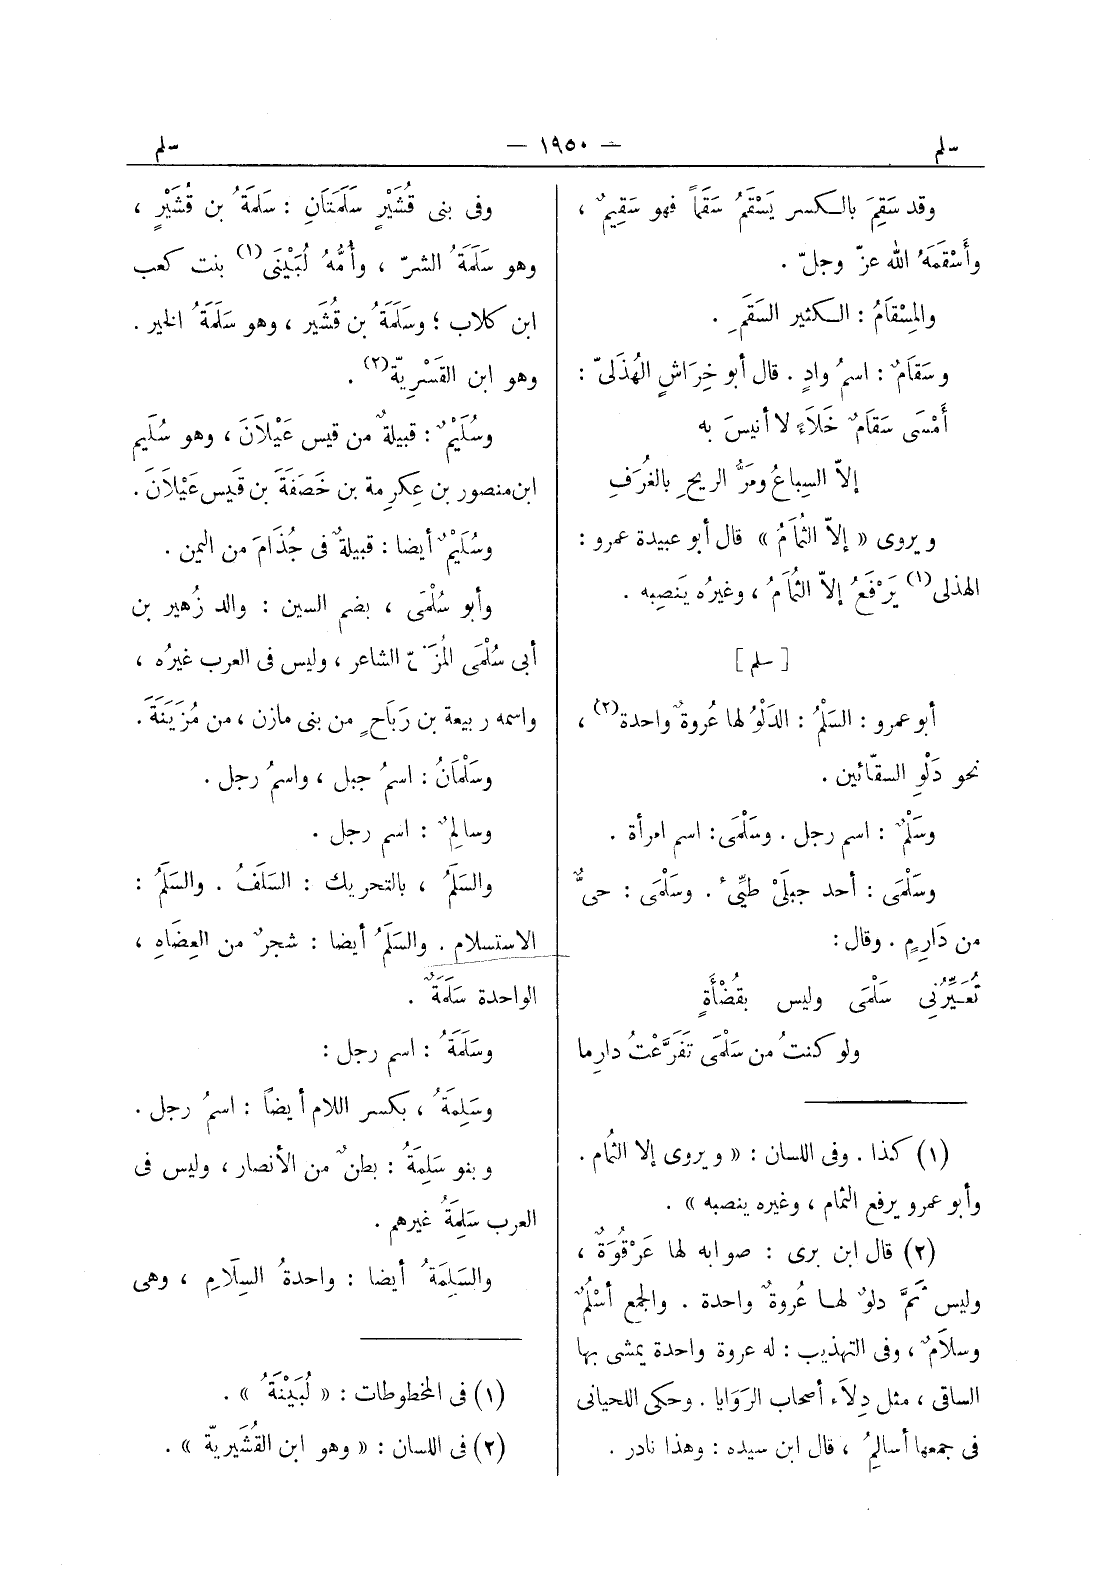 سلم
— ١٩٥٠ —
سلم
وقد سَقِمَ بالكسر يَسْقَمُ سَقَماً فهو سَقِيمٌ ،
وأَسْقَمَهُ الله عزّ وجلّ .
والمِسْقَامُ : الكثير السَقَمِ .
وسَقَامٌ : اسمُ وادٍ . قال أبو خِرَاشٍ الهُذَلىّ :
أَمْسَى سَقَامٌ خَلَاءً لا أنيسَ به
إلاّ السِباعُ ومَرُّ الريحِ بالغُرَفِ
ويروى « إلاّ الثُمَامُ » قال أبو عبيدة عمرو :
الهذلى(١) يَرْفَعُ إلاّ الثُمَامُ ، وغيرُه يَنصِبه .
[ سلم ]
أبو عمرو : السَلْمُ : الدَلْوُ لها عُروةٌ واحدة(٢) ،
نحو دَلْوِ السقّائين .
وسَلْمٌ : اسم رجل . وسَلْمَى : اسم امرأة .
وسَلْمَى : أحد جبلَىْ طيِّئٍ . وسَلْمَى : حىٌّ
من دَارِمٍ . وقال :
تُعَيِّرُنِى سَلْمَى وليس بقُضْأَةٍ
ولو كنتُ من سَلْمَى تَفَرَّعْتُ دارِما
(١) كذا . وفى اللسان : « ويروى إلا الثُمام .
وأبو عمرو يرفع الثمام ، وغيره ينصبه » .
(٢) قال ابن برى : صوابه لها عَرْقُوَةٌ ،
وليس ثَمَّ دلوٌ لها عُروةٌ واحدة . والجمع أسْلُمٌ
وسلَامٌ ، وفى التهذيب : له عروة واحدة يمشى بها
الساقى ، مثل دِلَاء أصحاب الرَوَايا . وحكى اللحيانى
فى جمعها أسالِمُ ، قال ابن سيده : وهذا نادر .
وفى بنى قُشَيْرٍ سَلَمَتَانِ : سَلَمةُ بن قُشَيْرٍ ،
وهو سَلَمَةُ الشرّ ، وأُمُّهُ لُبَيْنَى(١) بنت كعب
ابن كلاب ؛ وسَلَمَةُ بن قُشَير ، وهو سَلَمَةُ الخير .
وهو ابن القَسْرِيّة(٢) .
وسُلَيْمٌ : قبيلةٌ من قيس عَيْلَانَ ، وهو سُلَيم
ابن منصور بن عِكرِمة بن خَصَفَةَ بن قَيس عَيْلَانَ .
وسُلَيْمٌ أيضا : قبيلةٌ فى جُذَامَ من اليمن .
وأبو سُلْمَى ، بضم السين : والد زُهير بن
أبى سُلْمَى المُزَنىّ الشاعر ، وليس فى العرب غيرُه ،
واسمه ربيعة بن رَبَاحٍ من بنى مازن ، من مُزَيْنَةَ .
وسَلْمَانُ : اسمُ جبل ، واسمُ رجل .
وسالِمٌ : اسم رجل .
والسَلَمُ ، بالتحريك : السَلَفُ . والسَلَمُ :
الاستسلام . والسَلَمُ أيضا : شجرٌ من العِضَاهِ ،
الواحدة سَلَمَةٌ .
وسَلَمَةُ : اسم رجل :
وسَلِمَةُ ، بكسر اللام أيضاً : اسمُ رجل .
وبنو سَلِمَةُ : بطنٌ من الأنصار ، وليس فى
العرب سَلِمَةُ غيرهم .
والسَلِمَةُ أيضا : واحدةُ السِلَامِ ، وهى
(١) فى المخطوطات : « لُبَيْنَةُ » .
(٢) فى اللسان : « وهو ابن القُشَيرِيّة » .